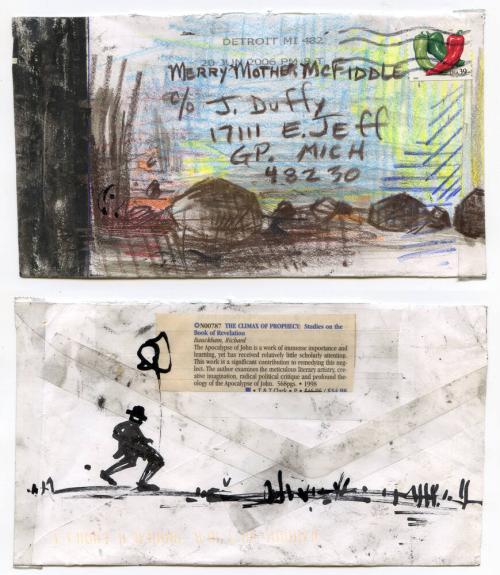 DETROIT MI 482
20 JUN 2006 PM
MERRY MOTHER MCFIDDLE
c/o J. DUFFY
17111 E. JEFF
GP. MICH
48230
39
N00787 THE CLIMAX OF PROPHECY: Studies on the
Book of Revelation
Bauckham, Richard
The Apocalypse of John is a work of immense importance and
learning, yet has received relatively little scholarly attention.
This work is a significant contribution to remedying this neg-
lect. The author examines the meticulous literary artistry, cre-
ative imagination, radical political critique and profound the-
ology of the Apocalypse of John. 568pgs. • 1998
• T & T Clark • P •